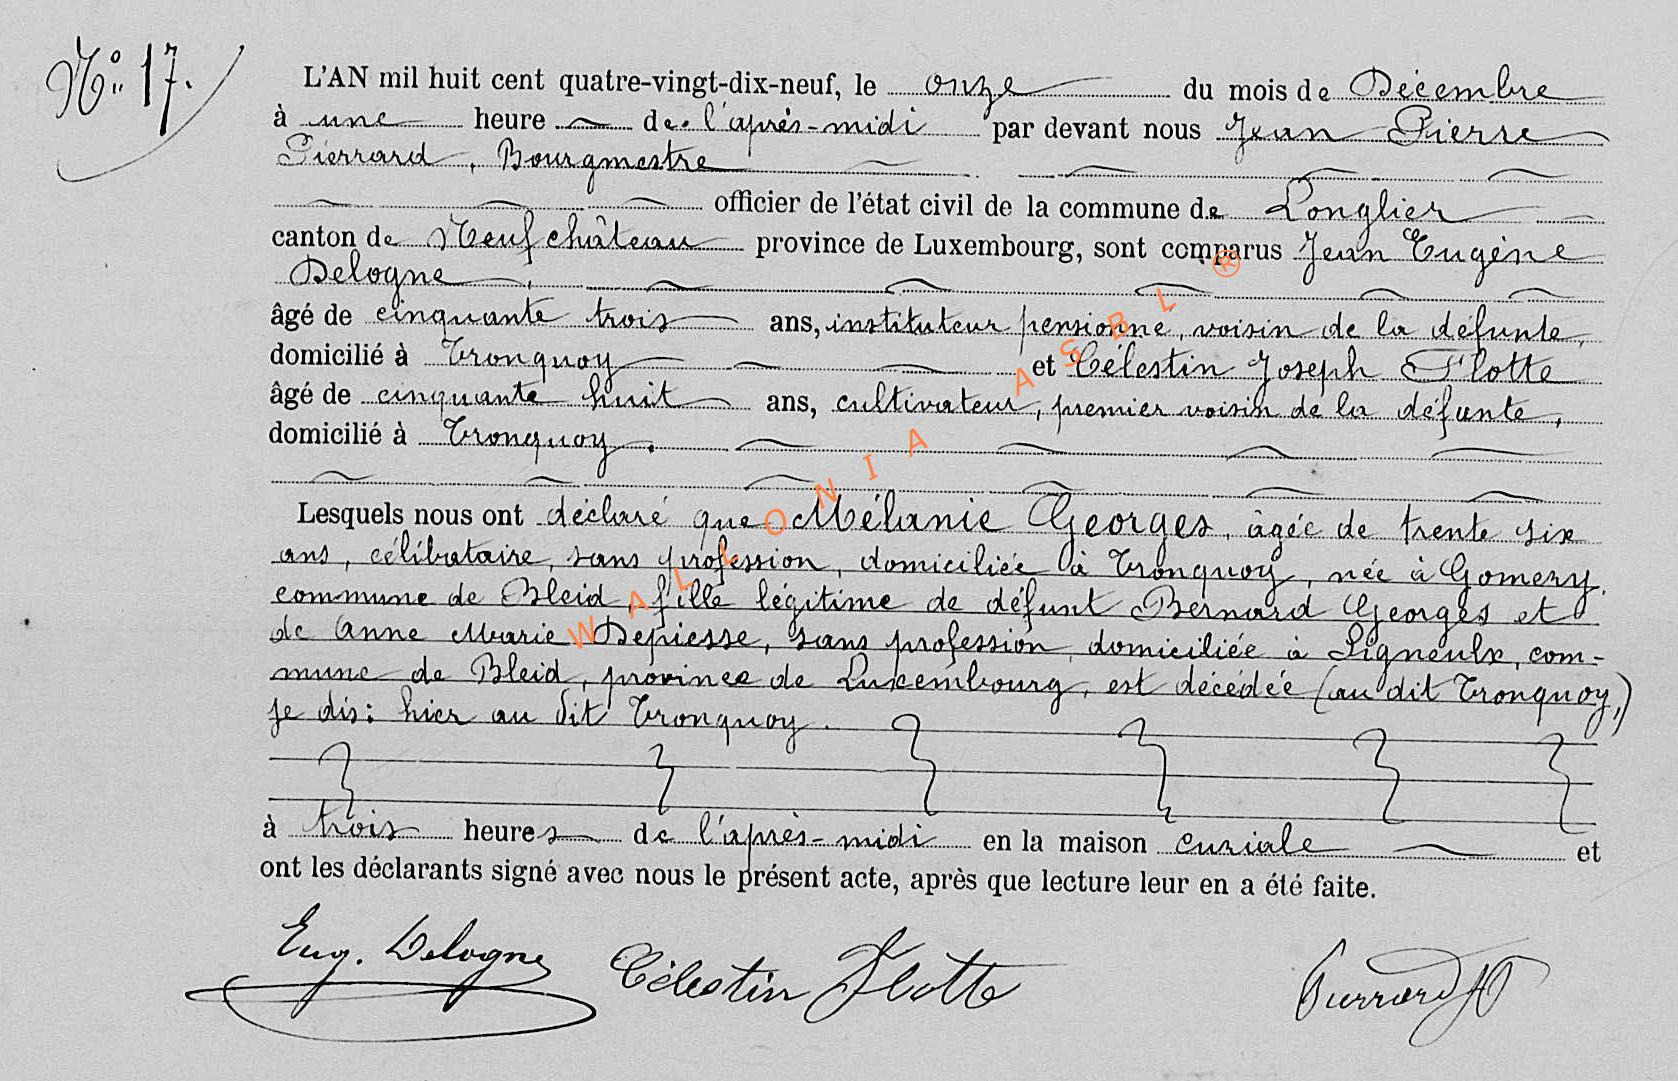 No. 17.
L'AN mil huit cent quatre-vingt-dix-neuf, le onze du mois de Décembre
à une heure de l'après-midi par devant nous Jean Pierre
Pierrard, Bourgmestre
officier de l'état civil de la commune de Longlier
canton de Neufchâteau province de Luxembourg, sont comparus Jean Eugène
Delogne,
âgé de cinquante trois ans, instituteur pensionné, voisin de la défunte,
domicilié à Tronquoy et Célestin Joseph Flotte
âgé de cinquante huit ans, cultivateur, premier voisin de la défunte,
domicilié à Tronquoy.
Lesquels nous ont déclaré que Mélanie Georges, âgée de trente six
ans, célibataire, sans profession, domiciliée à Tronquoy, née à Gomery,
commune de Bleid, fille légitime de défunt Bernard Georges et
de Anne Marie Depiesse, sans profession, domiciliée à Signeulx, com-
mune de Bleid, province de Luxembourg, est décédée (au dit Tronquoy,)
je dis: hier au dit Tronquoy.
à trois heures de l'après-midi en la maison curiale et
ont les déclarants signé avec nous le présent acte, après que lecture leur en a été faite.
Eug. Delogne Célestin Flotte Pierrard JP
WALLONIA ASBL ®